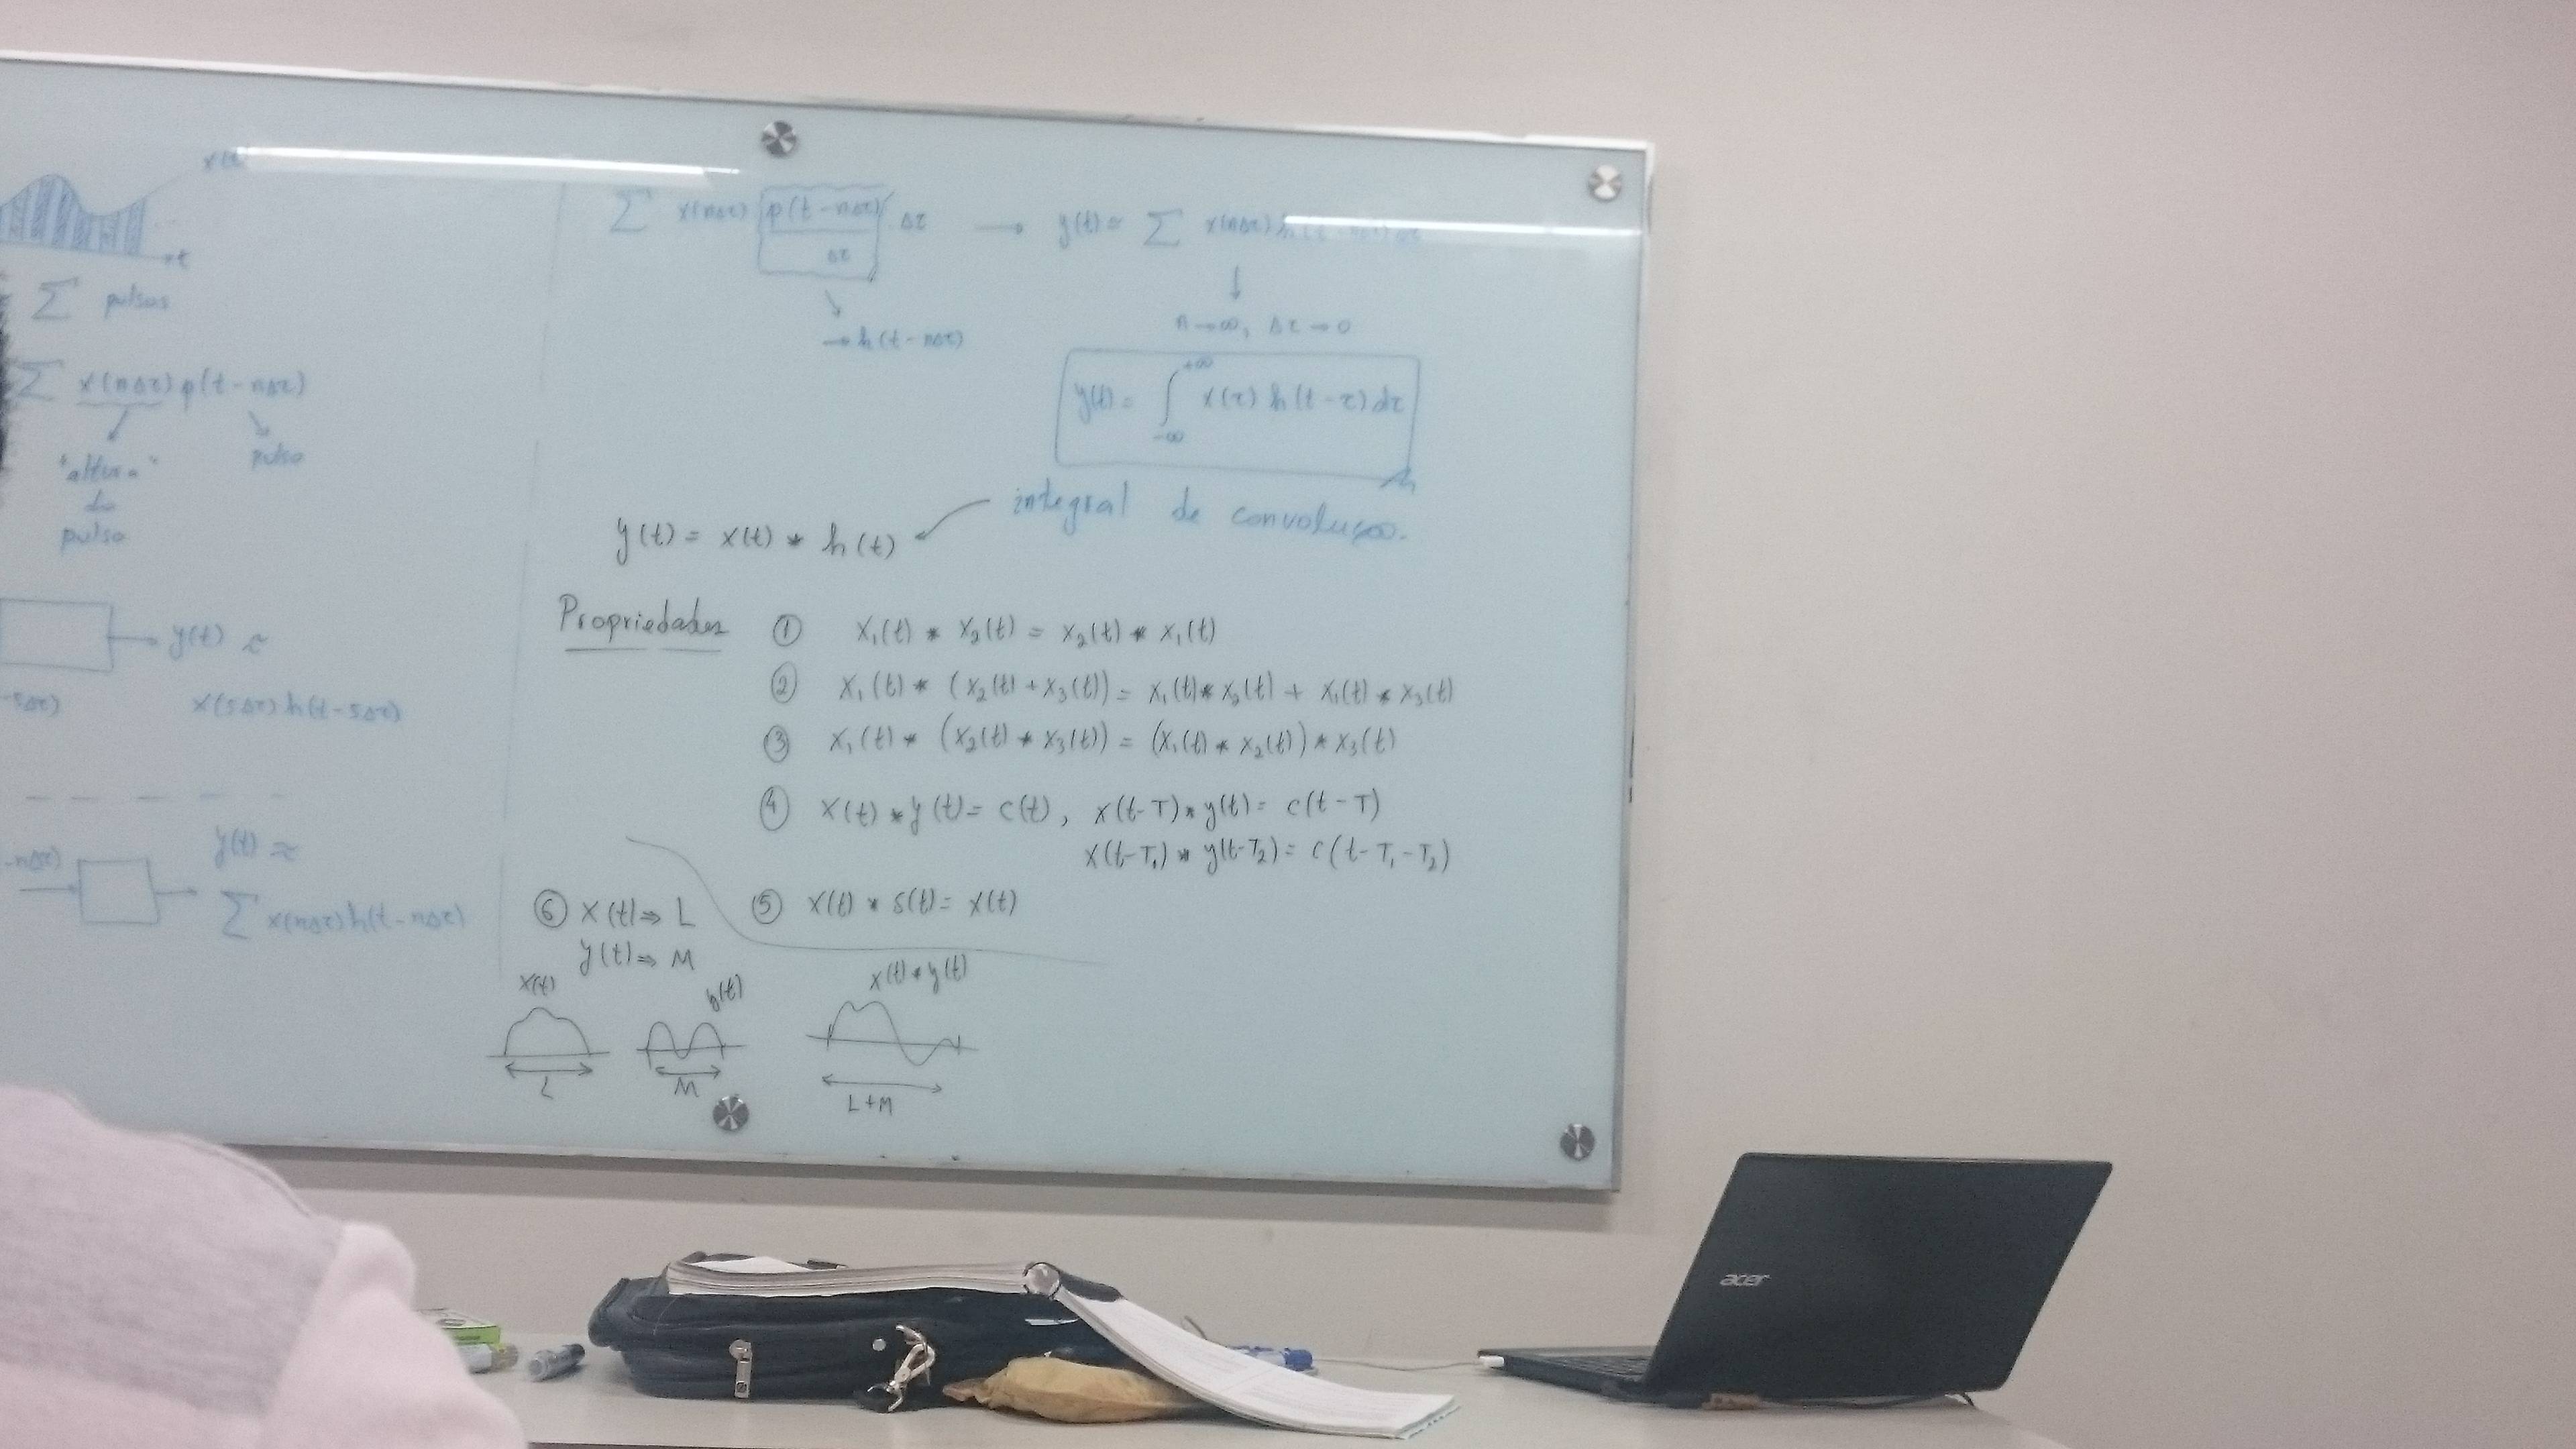 x(t)
t
∑ pulsos
∑ x(nΔτ) p(t-nΔτ)
"altura" do pulso
pulso
y(t) ≈
-5Δτ)
x(5Δτ) h(t-5Δτ)
-nΔτ)
y(t) ≈
∑ x(nΔτ) h(t-nΔτ)
∑ x(nΔτ) p(t-nΔτ)/Δτ Δτ → y(t) ≈ ∑ x(nΔτ) h(t-nΔτ) Δτ
→ h(t-nΔτ)
n→∞, Δτ→0
y(t) = ∫ -∞ +∞ x(τ) h(t-τ) dτ
integral de convolução.
y(t) = x(t) * h(t)
Propriedades
① x₁(t) * x₂(t) = x₂(t) * x₁(t)
② x₁(t) * (x₂(t) + x₃(t)) = x₁(t) * x₂(t) + x₁(t) * x₃(t)
③ x₁(t) * (x₂(t) * x₃(t)) = (x₁(t) * x₂(t)) * x₃(t)
④ x(t) * y(t) = c(t), x(t-T) * y(t) = c(t-T)
x(t-T₁) * y(t-T₂) = c(t-T₁-T₂)
⑤ x(t) * δ(t) = x(t)
⑥ x(t) ⇒ L
y(t) ⇒ M
x(t)
L
y(t)
M
x(t) * y(t)
L+M
acer